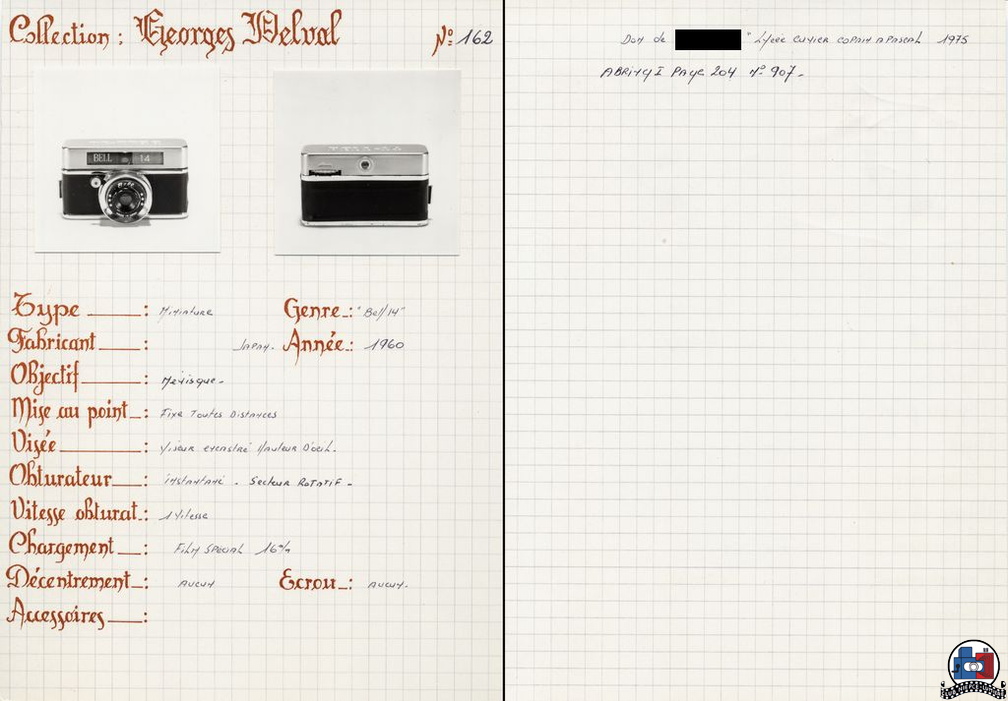 Collection : Georges Delval Nº 162
BELL 14
Type : Miniature Genre : "Bell/14"
Fabricant : Japan. Année : 1960
Objectif : Ménisque.
Mise au point : Fixe Toutes Distances
Visée : Viseur encastré Hauteur D'oeil.
Obturateur : instantané - Secteur Rotatif -
Vitesse obturat. : 1 Vitesse
Chargement : Film Special 16 m/m
Décentrement : Aucun Ecrou : Aucun.
Accessoires :
Don de " Lycée Cuvier copain a Pascal 1975
ABRING I Page 204 Nº 907 -